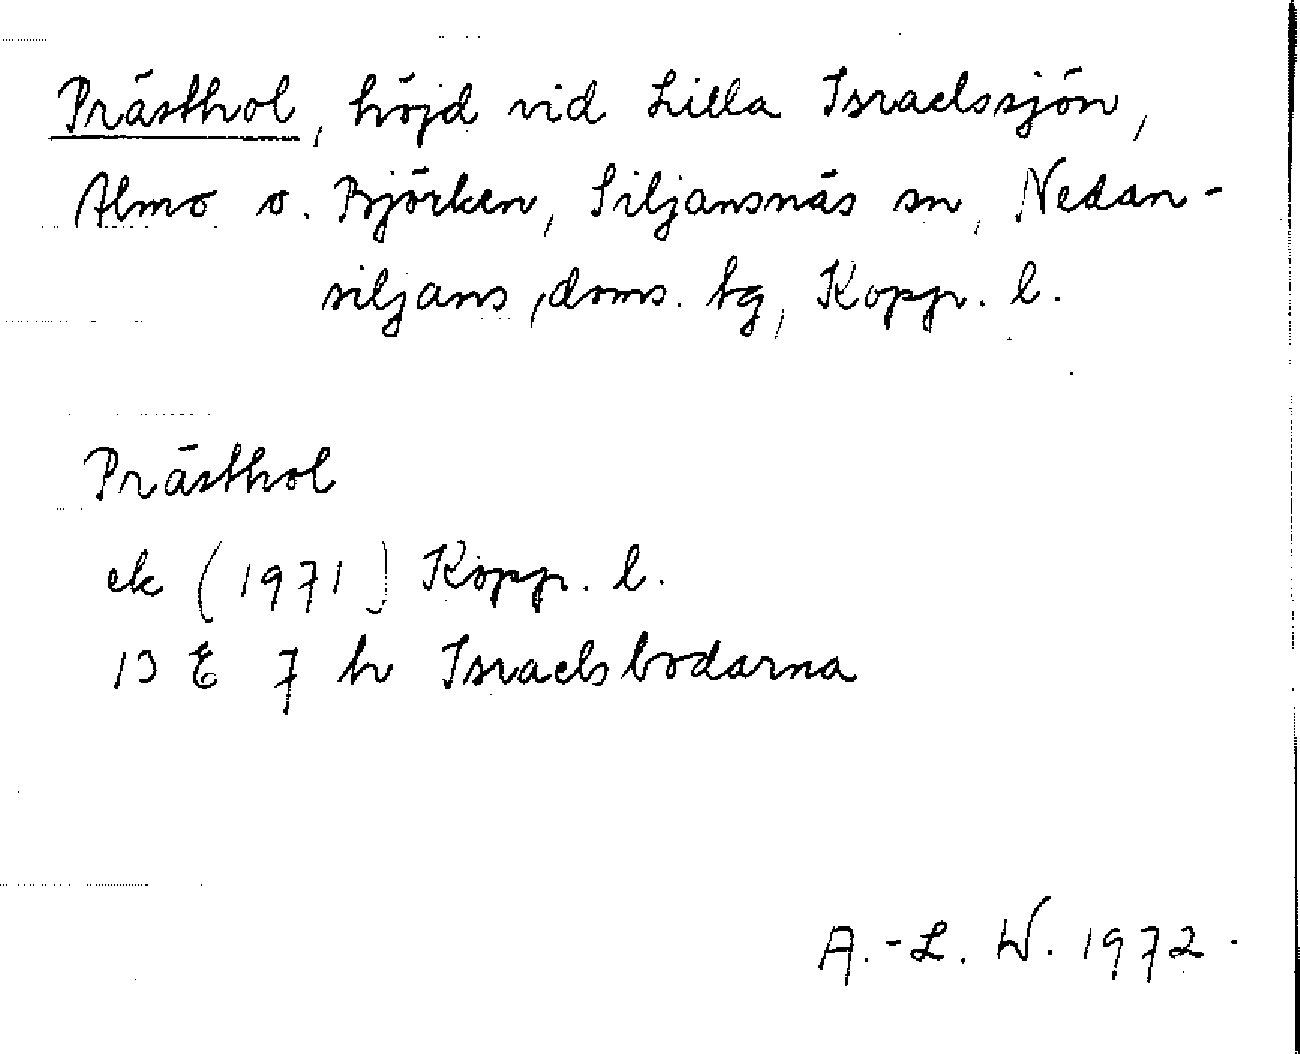 Prästhol, höjd vid Lilla Israelssjön,
Almo o. Björken, Siljansnäs sn, Nedan-
siljans doms. tg, Kopp. l.
Prästhol
ek (1971) Kopp. l.
13 E 7 h Israelsbodarna
A.-L. W. 1972.